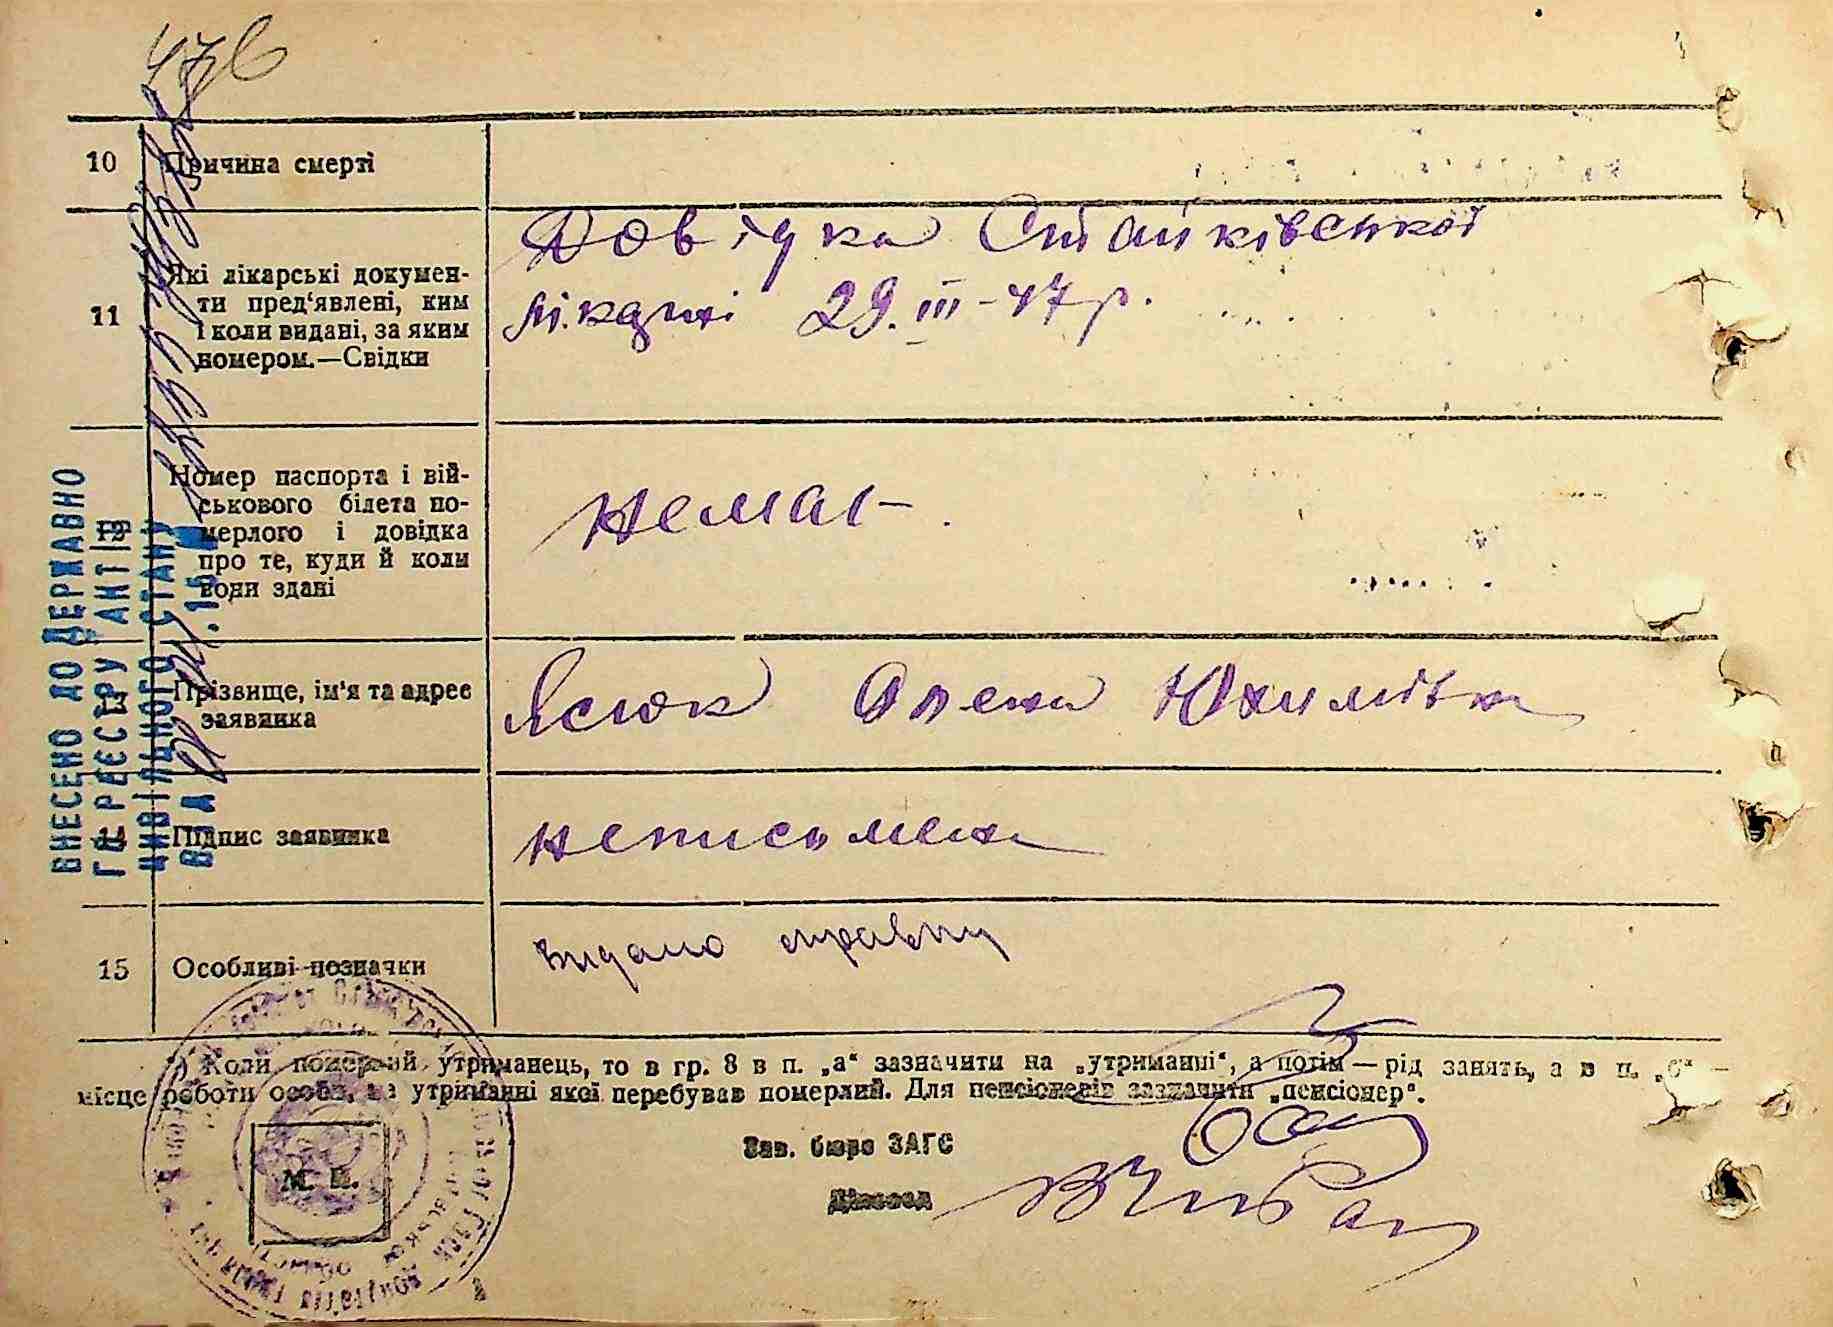 476
10 Причина смерті
11 Які лікарські докумен-
ти пред'явлені, ким
і коли видані, за яким
номером.—Свідки
Довідка Стайківської
лікарні 29.III-47 р.
12 Номер паспорта і вій-
ськового білета по-
мерлого і довідка
про те, куди й коли
вони здані
немає
13 Прізвище, ім'я та адрес
заявника
Ясюк Олена Юхимівна
14 Підпис заявника
неписьмена
15 Особливі позначки
видано справку
ВНЕСЕНО ДО ДЕРЖАВНО
ГО РЕЄСТРУ АКТІВ
ЦИВІЛЬНОГО СТАНУ
*) Коли померлий утриманець, то в гр. 8 в п. „а“ зазначити на „утриманні“, а потім — рід занять, а в п. „б“ —
місце роботи особи, на утриманні якої перебував померлий. Для пенсіонерів зазначити „пенсіонер“.
Зав. бюро ЗАГС
Діловод
М. П.